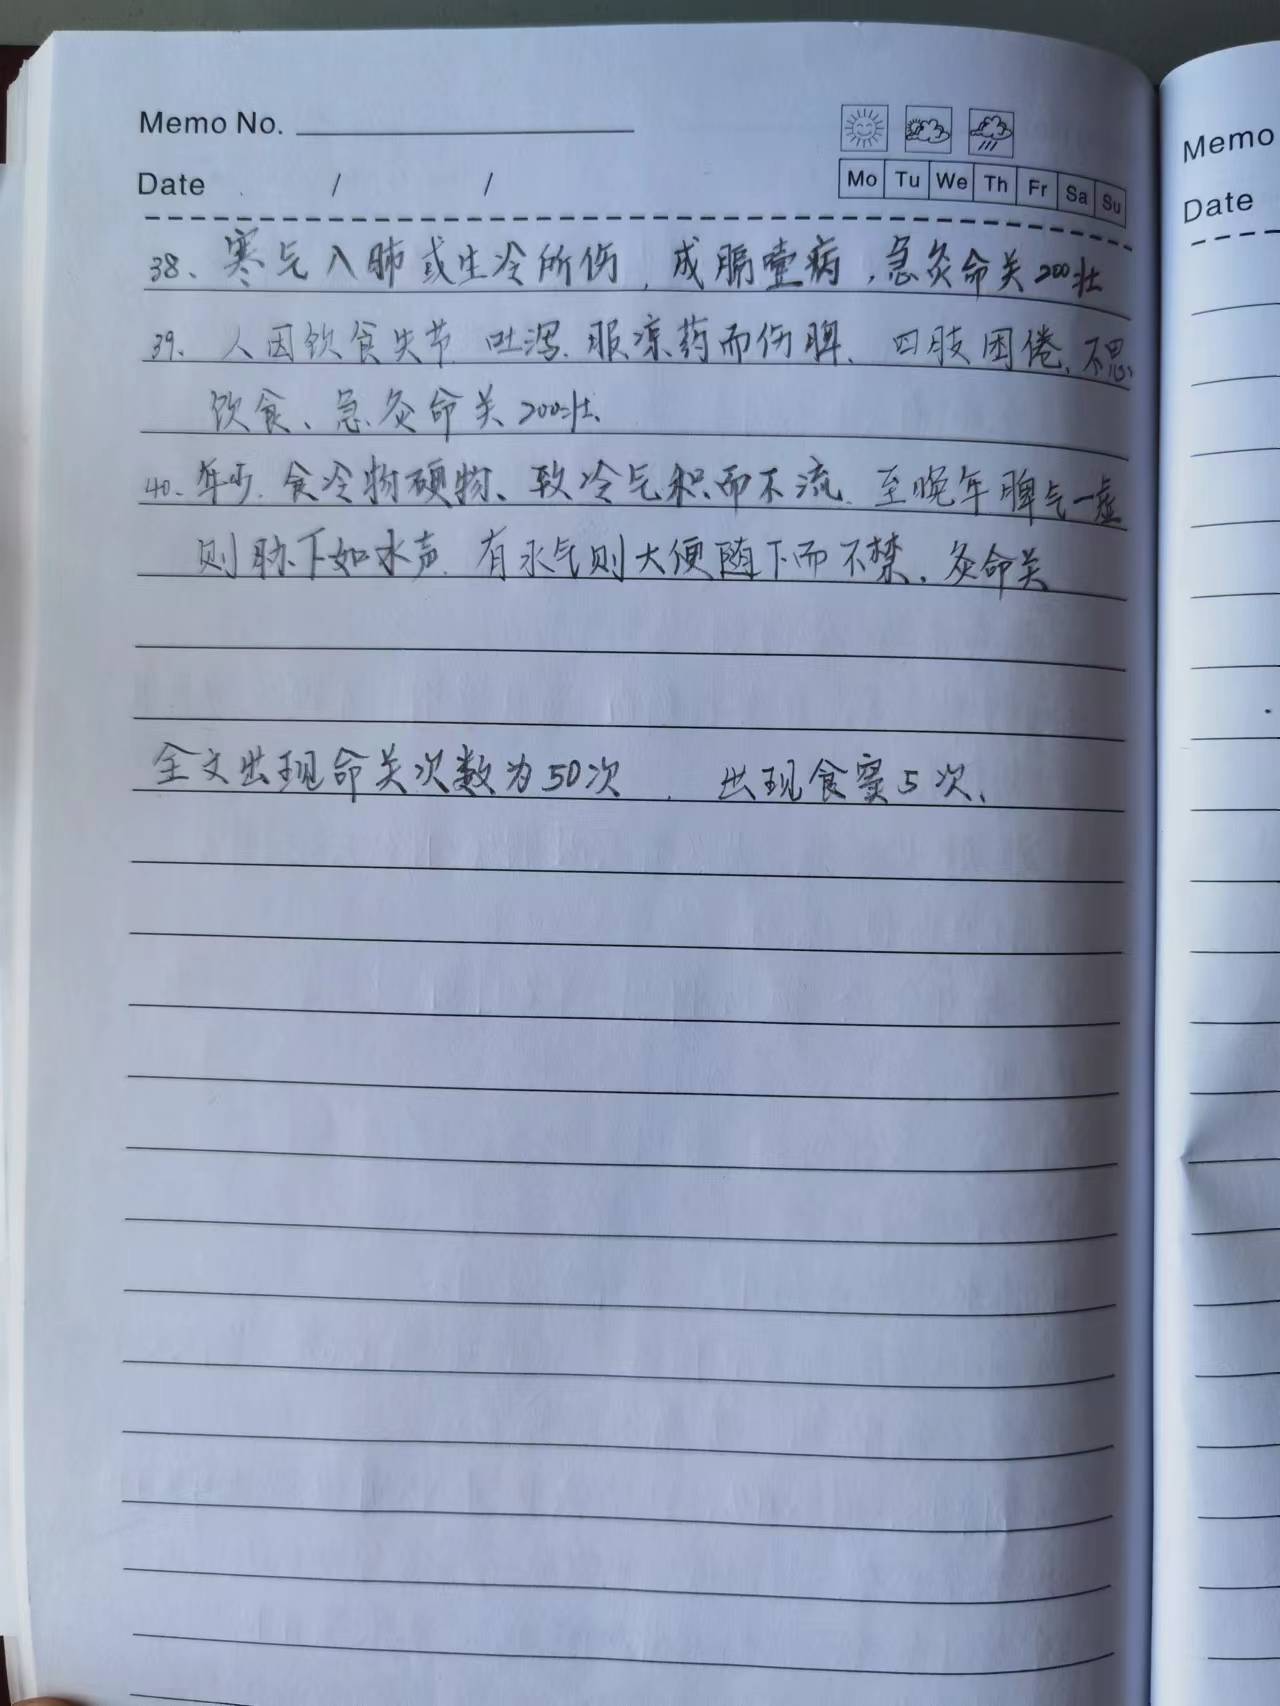 Memo No.
Date / /
Mo Tu We Th Fr Sa Su
38、寒气入肺或生冷所伤，成膈噎病，急灸命关200壮
39、人因饮食失节.吐泻.服凉药而伤脾、四肢困倦,不思
饮食、急灸命关200壮、
40、年少.食冷物硬物、致冷气积而不流.至晚年脾气一虚
则胁下如水声.有水气则大便随下而不禁、灸命关
全文出现命关次数为50次. 出现食窦5次、
Memo
Date